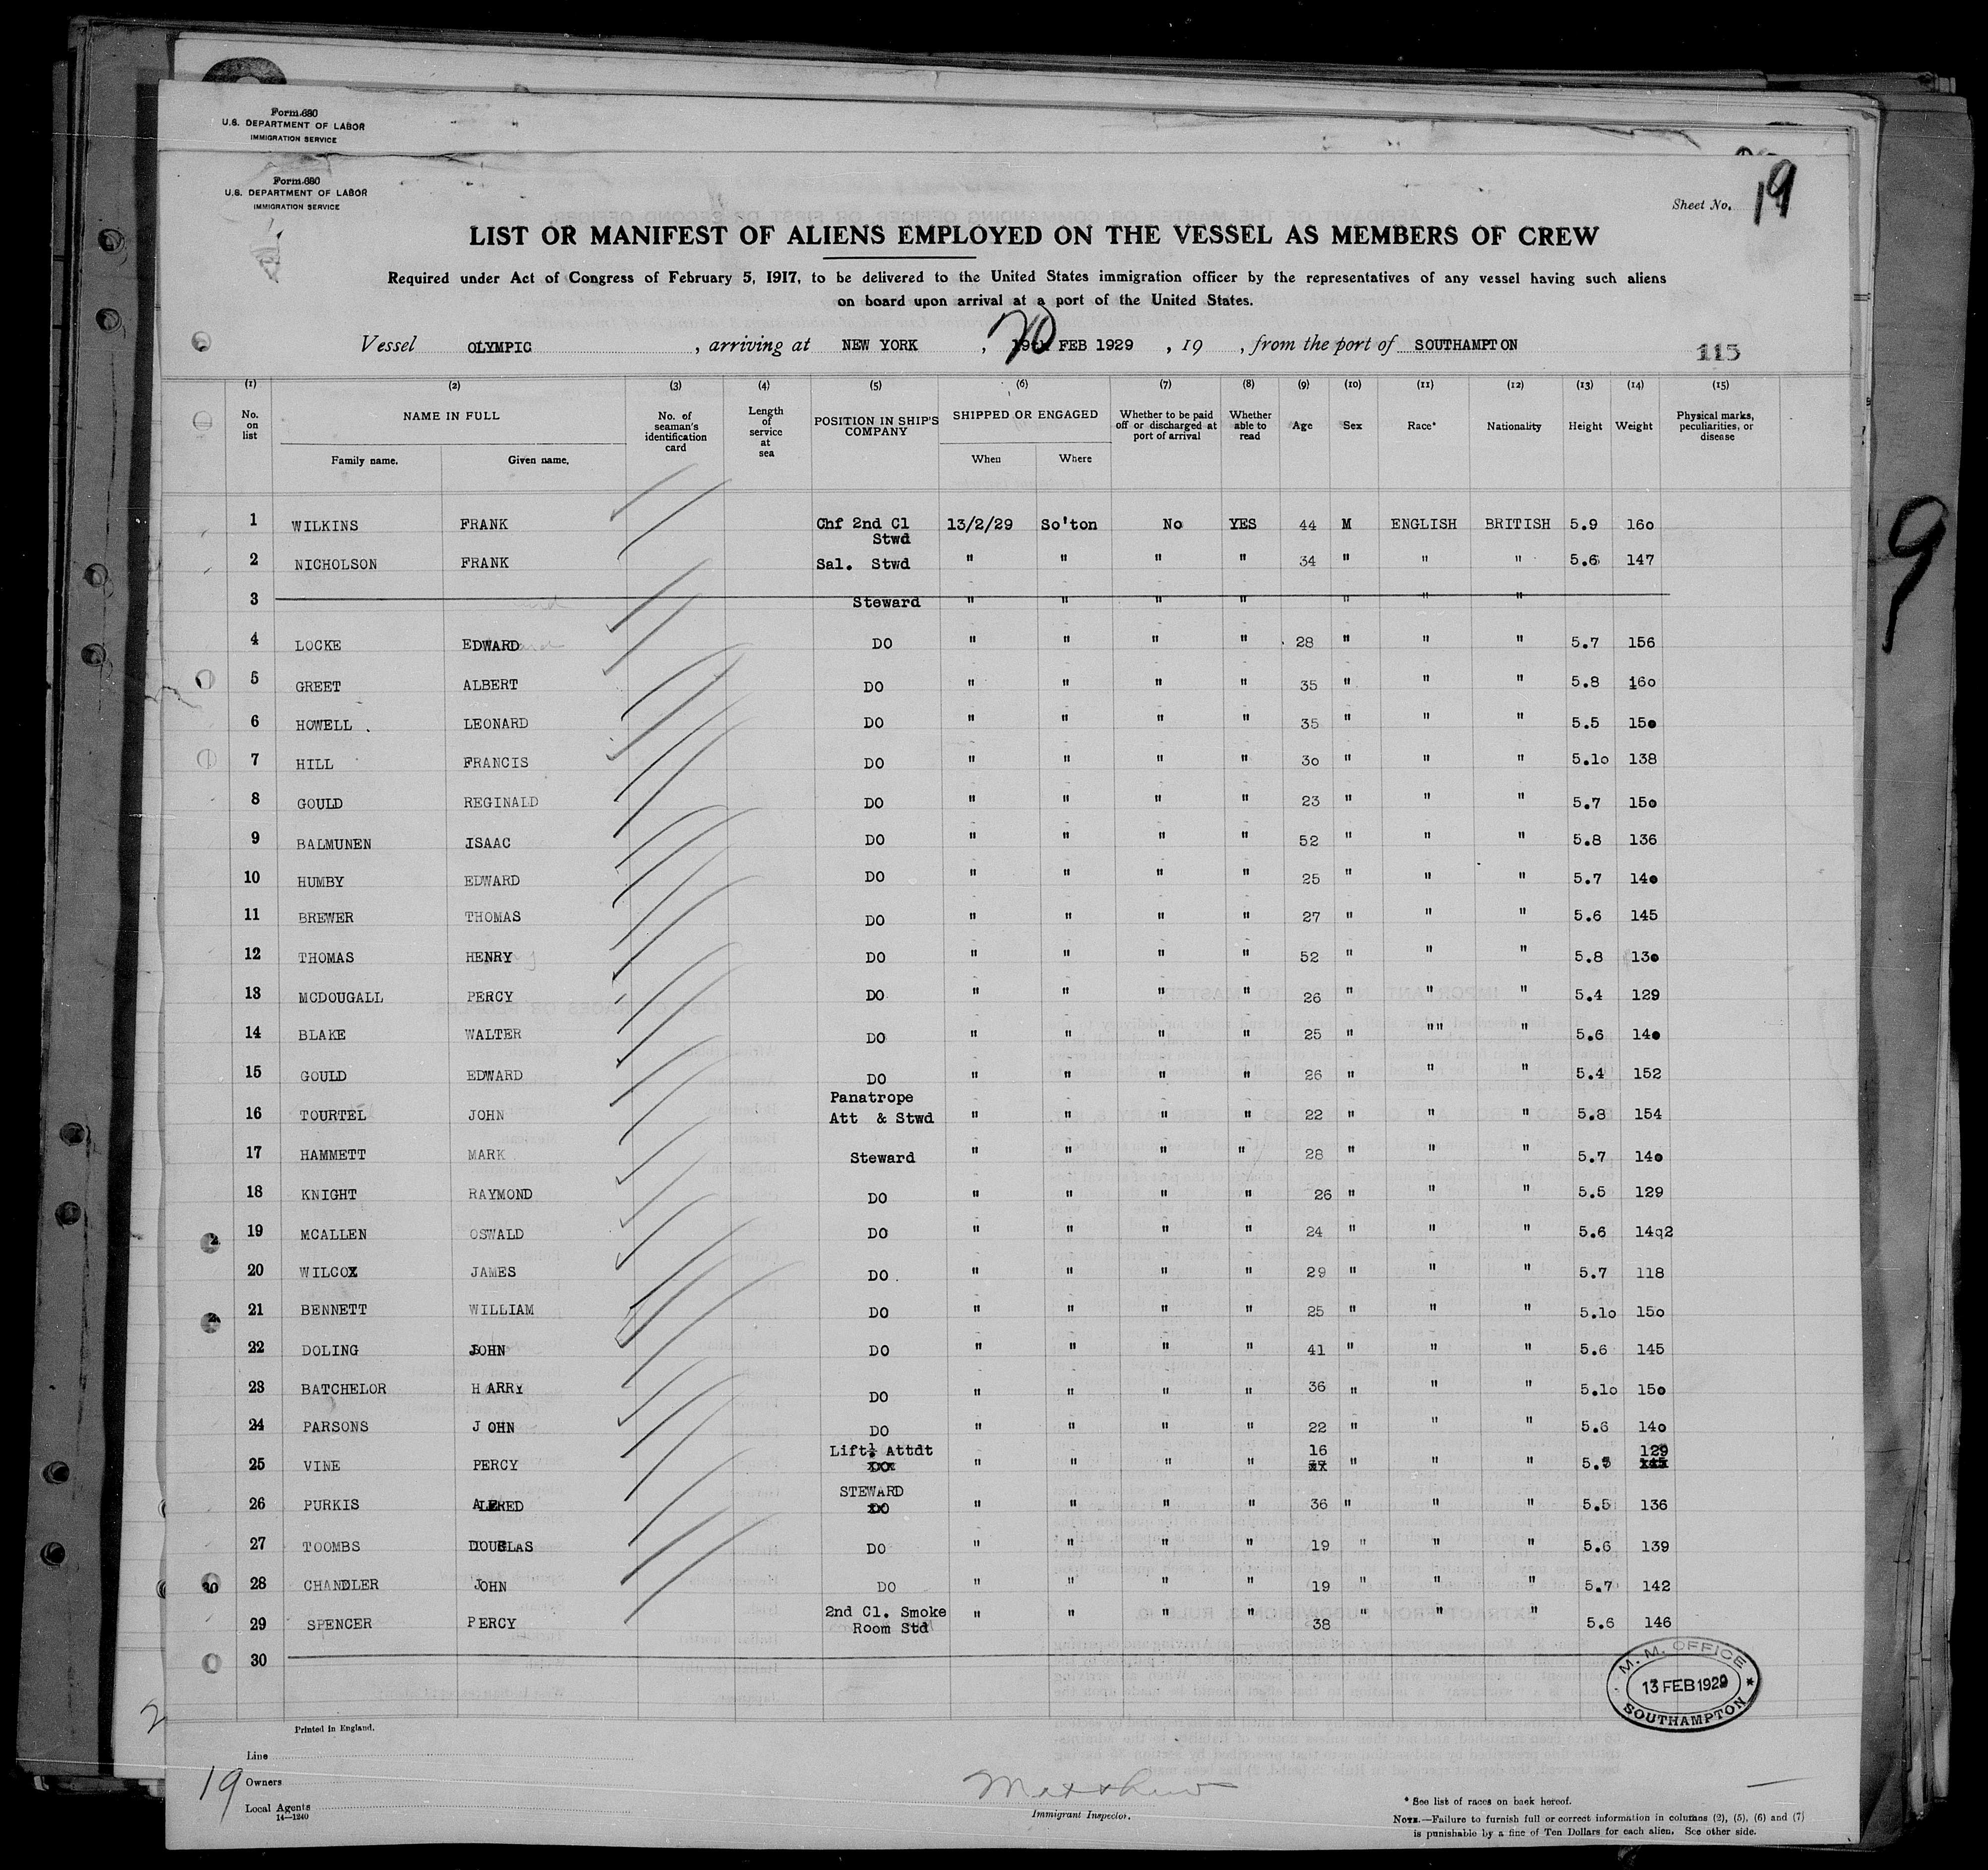 Form 680
U.S. DEPARTMENT OF LABOR
IMMIGRATION SERVICE
Form 680
U.S. DEPARTMENT OF LABOR
IMMIGRATION SERVICE
Sheet No. 19
LIST OR MANIFEST OF ALIENS EMPLOYED ON THE VESSEL AS MEMBERS OF CREW
Required under Act of Congress of February 5, 1917, to be delivered to the United States immigration officer by the representatives of any vessel having such aliens
on board upon arrival at a port of the United States.
Vessel OLYMPIC, arriving at NEW YORK, 20 FEB 1929, 19 , from the port of SOUTHAMPTON 115
(1) (2) (3) (4) (5) (6) (7) (8) (9) (10) (11) (12) (13) (14) (15)
No. on list NAME IN FULL Family name. Given name. No. of seaman's identification card Length of service at sea POSITION IN SHIP'S COMPANY SHIPPED OR ENGAGED When Where Whether to be paid off or discharged at port of arrival Whether able to read Age Sex Race* Nationality Height Weight Physical marks, peculiarities, or disease
1 WILKINS FRANK Chf 2nd Cl Stwd 13/2/29 So'ton No YES 44 M ENGLISH BRITISH 5.9 160
2 NICHOLSON FRANK Sal. Stwd " " " " 34 " " " 5.6 147
3 Steward " " " " " " "
4 LOCKE EDWARD DO " " " " 28 " " " 5.7 156
5 GREET ALBERT DO " " " " 35 " " " 5.8 160
6 HOWELL . LEONARD DO " " " " 35 " " " 5.5 150
7 HILL FRANCIS DO " " " " 30 " " " 5.10 138
8 GOULD REGINALD DO " " " " 23 " " " 5.7 150
9 BALMUNEN ISAAC DO " " " " 52 " " " 5.8 136
10 HUMBY EDWARD DO " " " " 25 " " " 5.7 140
11 BREWER THOMAS DO " " " " 27 " " " 5.6 145
12 THOMAS HENRY DO " " " " 52 " " " 5.8 130
13 MCDOUGALL PERCY DO " " " " 26 " " " 5.4 129
14 BLAKE WALTER DO " " " " 25 " "" " 5.6 140
15 GOULD EDWARD DO " " " " 26 " " " 5.4 152
16 TOURTEL JOHN Panatrope Att & Stwd " " " " 22 " " " 5.8 154
17 HAMMETT MARK Steward " " " " 28 " " " 5.7 140
18 KNIGHT RAYMOND DO " " " " 26 " " " 5.5 129
19 MCALLEN OSWALD DO " " " " 24 " " " 5.6 14q2
20 WILCOX JAMES DO . " " " " 29 " " " 5.7 118
21 BENNETT WILLIAM DO " " " " 25 " " " 5.10 150
22 DOLING JOHN DO " " " " 41 " " " 5.6 145
23 BATCHELOR HARRY DO " " " " 36 " " " 5.10 150
24 PARSONS JOHN DO " " " " 22 " " " 5.6 140
25 VINE PERCY Lift Attdt " " " " 16 " " " 5.5 129
26 PURKIS ALFRED STEWARD " " " " 36 " " " 5.5 136
27 TOOMBS DOUGLAS DO " " " " 19 " " " 5.6 139
28 CHANDLER JOHN DO " " " " 19 " " " 5.7 142
29 SPENCER PERCY 2nd Cl. Smoke Room Std " " " " 38 " " " 5.6 146
30
M. M. OFFICE
13 FEB 1929
SOUTHAMPTON
9
2
Printed in England.
Line
19 Owners
Local Agents
14—1240
Immigrant Inspector.
* See list of races on back hereof.
NOTE.—Failure to furnish full or correct information in columns (2), (5), (6) and (7)
is punishable by a fine of Ten Dollars for each alien. See other side.